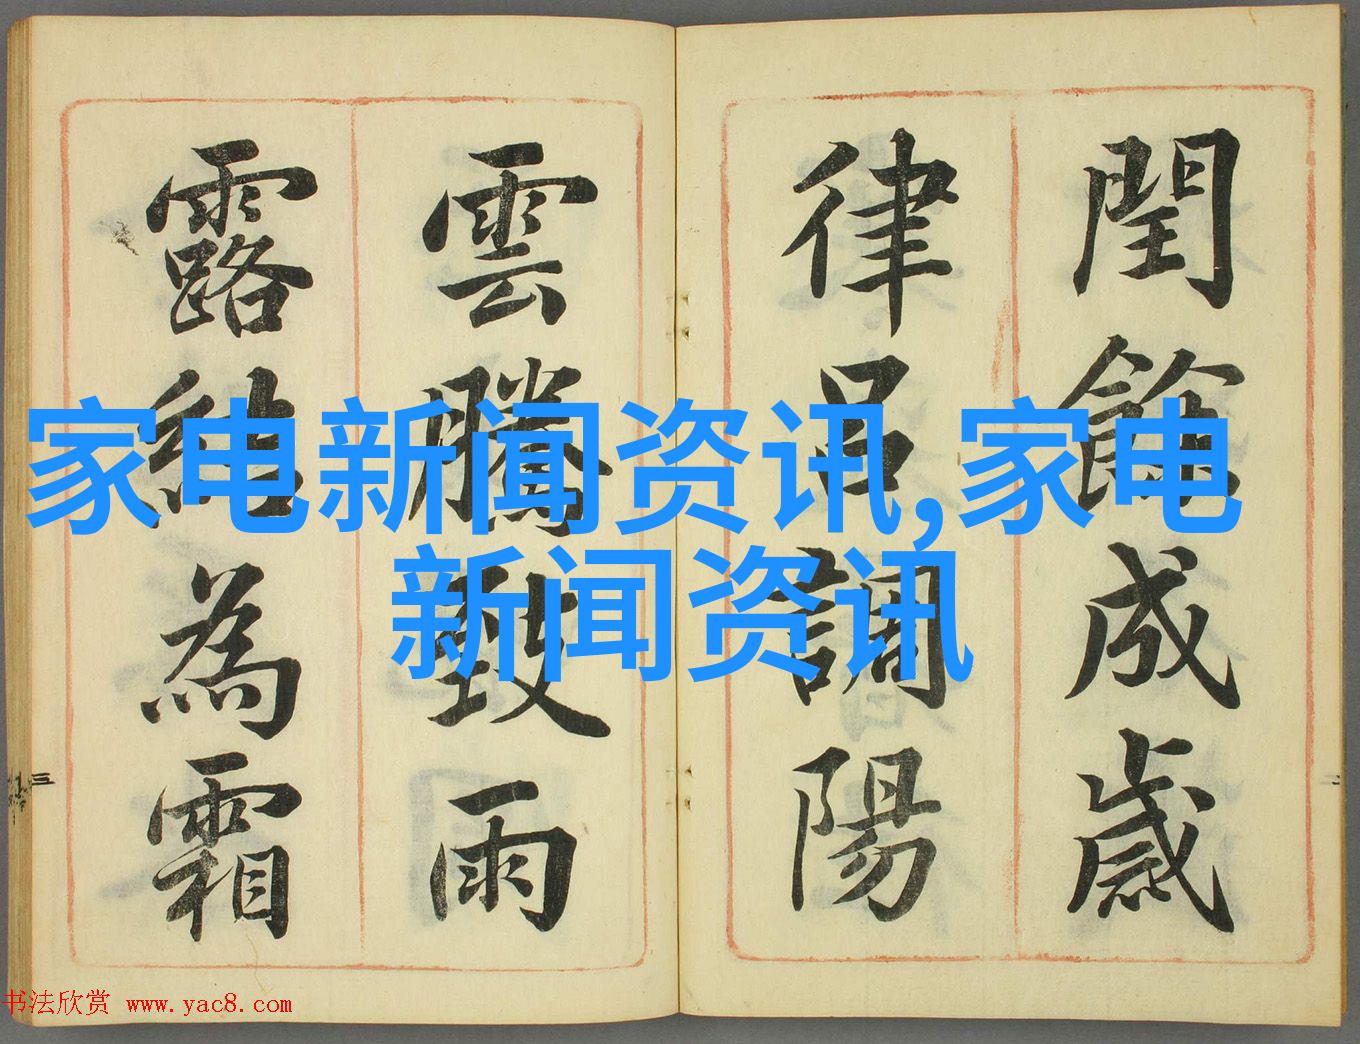 閏餘成歲
律呂調陽
雲騰致雨
露結為霜
家电新闻资讯,家电
新闻资讯
三
二
书法欣赏 www.yac8.com